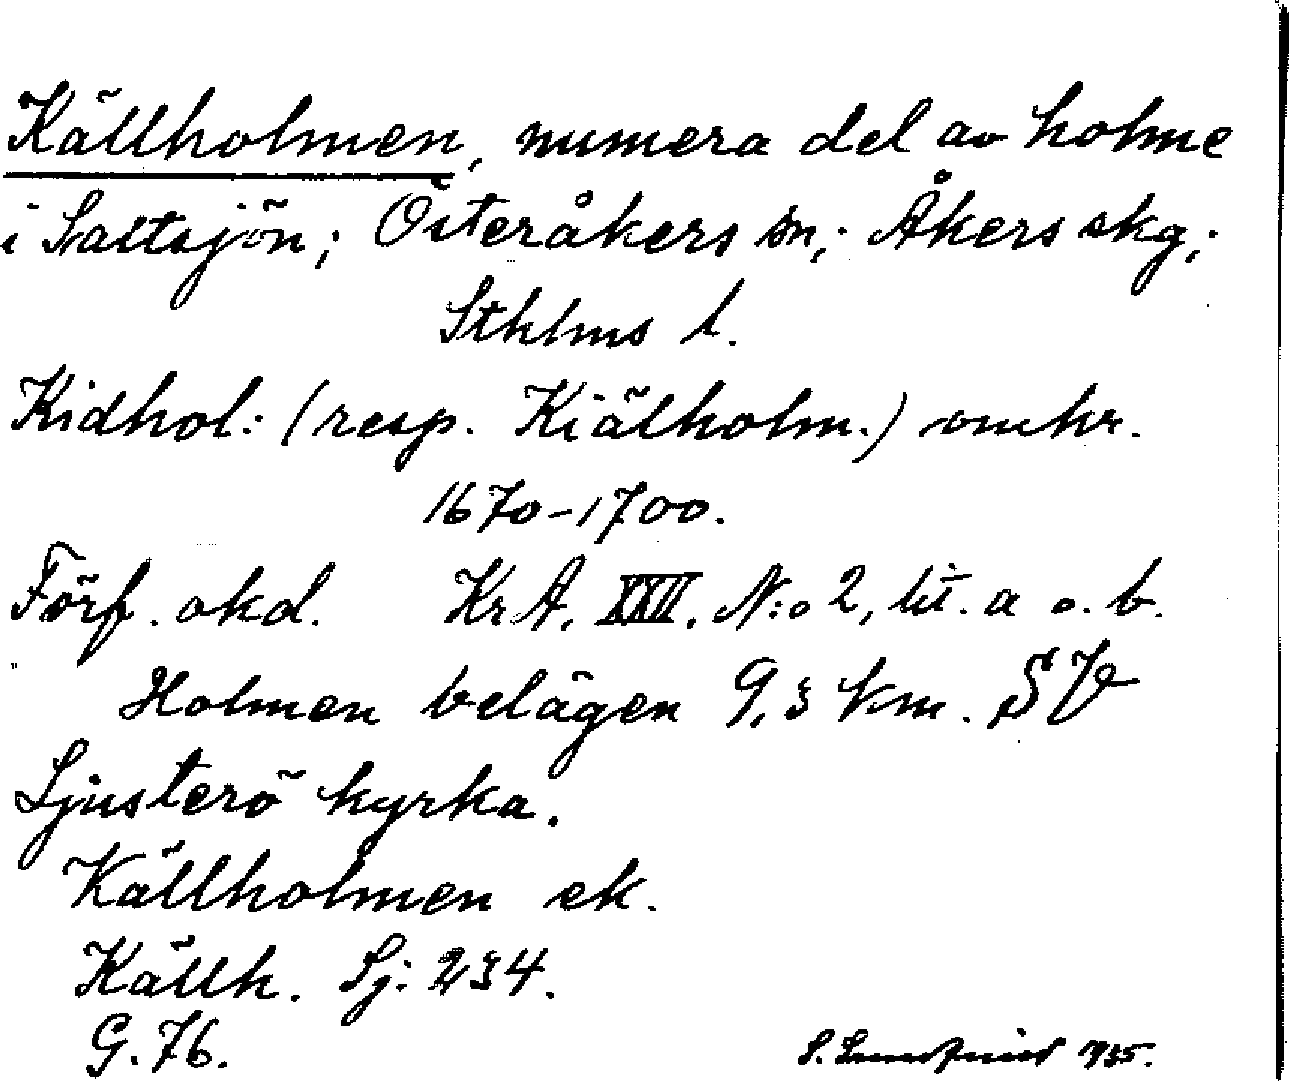 Källholmen, numera del av holme
i Saltsjön; Österåkers sn; Åkers skg;
Sthlms l.
Kidhol: (resp. Kiälholm.) omkr.
1670-1700.
Förf. okd. KrA. XXII. N:o 2, lit. a o. b.
Holmen belägen 9,3 km. SV
Ljusterö kyrka.
Källholmen ek.
Källh. Sj: 234.
G. 76.
S. 1935.